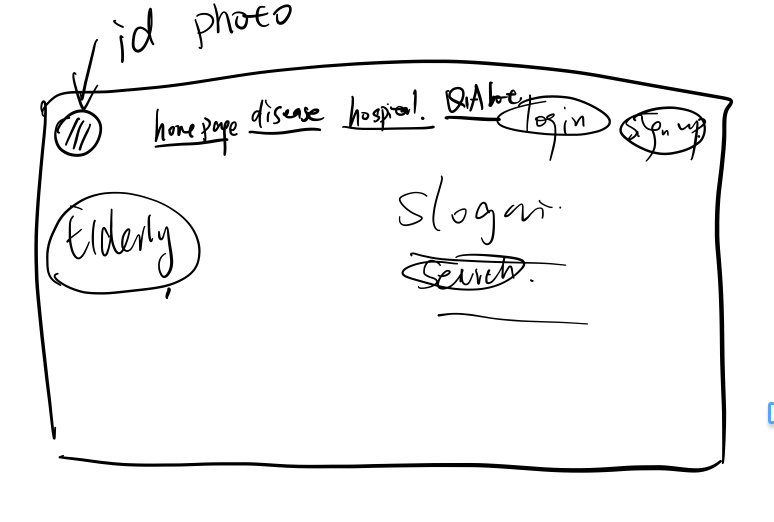 id photo
home page disease hospital. Q&A
login
sign up
Elderly
Slogan
Search.